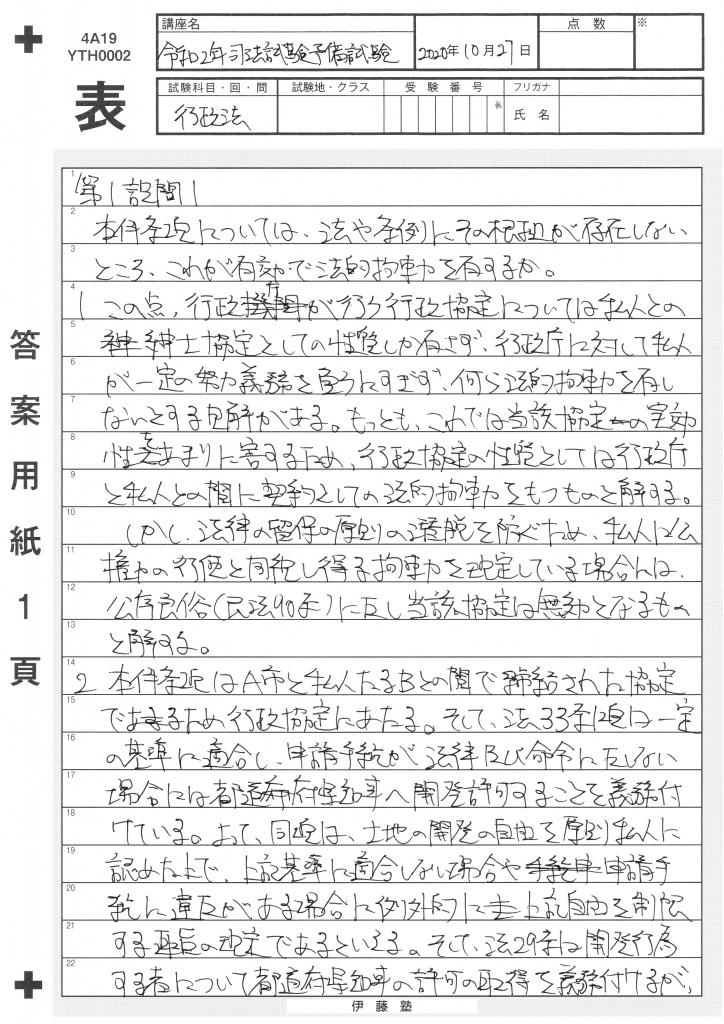 4A19
YTH0002
表
講座名
令和2年司法試験予備試験
2020年10月27日
点数
※
試験科目・回・問
行政法
試験地・クラス
受験番号
フリガナ
氏名
答案用紙1頁
1 第1 設問1
2 本件条項については、法や条例にその根拠が存在しない
3 ところ、これが有効で法的拘束力を有するか。
4 1 この点、行政庁が行う行政協定については私人との
5 紳士協定としての性質しか有さず、行政庁に対して私人
6 が一定の努力義務を負うにすぎず、何ら法的拘束力を有し
7 ないとする見解がある。もっとも、これでは当該協定の実効
8 性をあまりに害するため、行政協定の性質としては行政庁
9 と私人との間に契約としての法的拘束力をもつものと解する。
10 しかし、法律の留保の原則の潜脱を防ぐため、私人に公
11 権力の行使と同視し得る拘束力を規定している場合には、
12 公序良俗(民法90条)に反し当該協定は無効となるもの
13 と解する。
14 2 本件条項はA市と私人たるBとの間で締結された協定
15 であるため行政協定にあたる。そして、法33条1項は一定
16 の基準に適合し、申請手続が法律及び命令に反しない
17 場合には都道府県知事へ開発許可することを義務付
18 けている。よって、同項は、土地の開発の自由を原則私人に
19 認めた上で、上記基準に適合しない場合や申請手
20 続に違反がある場合に例外的に上記自由を制限
21 する趣旨の規定であるといえる。そして、法29条は開発行為
22 する者について都道府県知事の許可の取得を義務付けるが、
伊藤塾